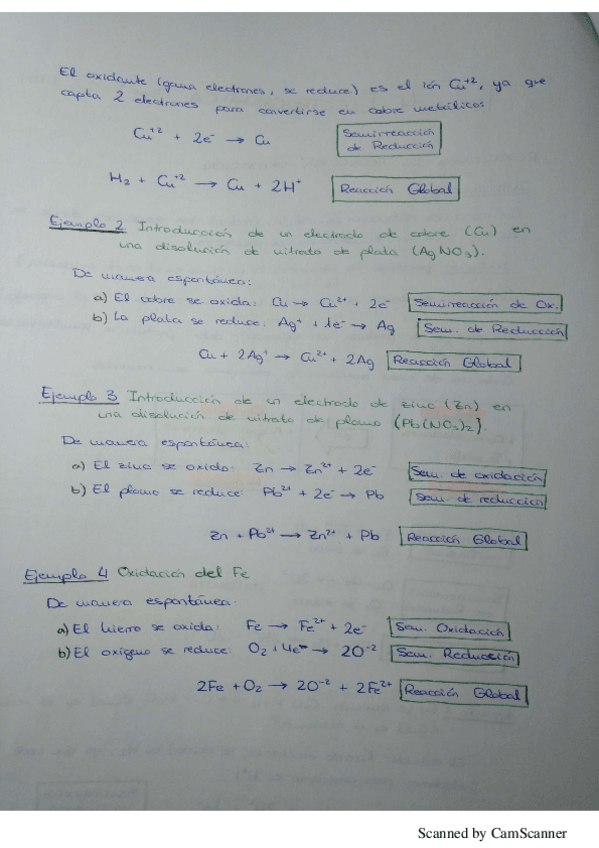 El oxidante (gana electrones, se reduce) es el ión Cu⁺², ya que
capta 2 electrones para convertirse en cobre metálico:
Cu⁺² + 2e⁻ → Cu Semirreacción
de Reducción
H₂ + Cu⁺² → Cu + 2H⁺ Reacción Global
Ejemplo 2 Introducción de un electrodo de cobre (Cu) en
una disolución de nitrato de plata (AgNO₃).
De manera espontánea:
a) El cobre se oxida: Cu → Cu²⁺ + 2e⁻ Semirreacción de Ox.
b) La plata se reduce: Ag⁺ + 1e⁻ → Ag Sem. de Reducción
Cu + 2Ag⁺ → Cu²⁺ + 2Ag Reacción Global
Ejemplo 3 Introducción de un electrodo de zinc (Zn) en
una disolución de nitrato de plomo (Pb(NO₃)₂).
De manera espontánea:
a) El zinc se oxida: Zn → Zn²⁺ + 2e⁻ Sem. de oxidación
b) El plomo se reduce: Pb²⁺ + 2e⁻ → Pb Sem. de reducción
Zn + Pb²⁺ → Zn²⁺ + Pb Reacción Global
Ejemplo 4 Oxidación del Fe
De manera espontánea:
a) El hierro se oxida: Fe → Fe²⁺ + 2e⁻ Sem. Oxidación
b) El oxígeno se reduce: O₂ + 4e⁻ → 2O⁻² Sem. Reducción
2Fe + O₂ → 2O⁻² + 2Fe²⁺ Reacción Global
Scanned by CamScanner